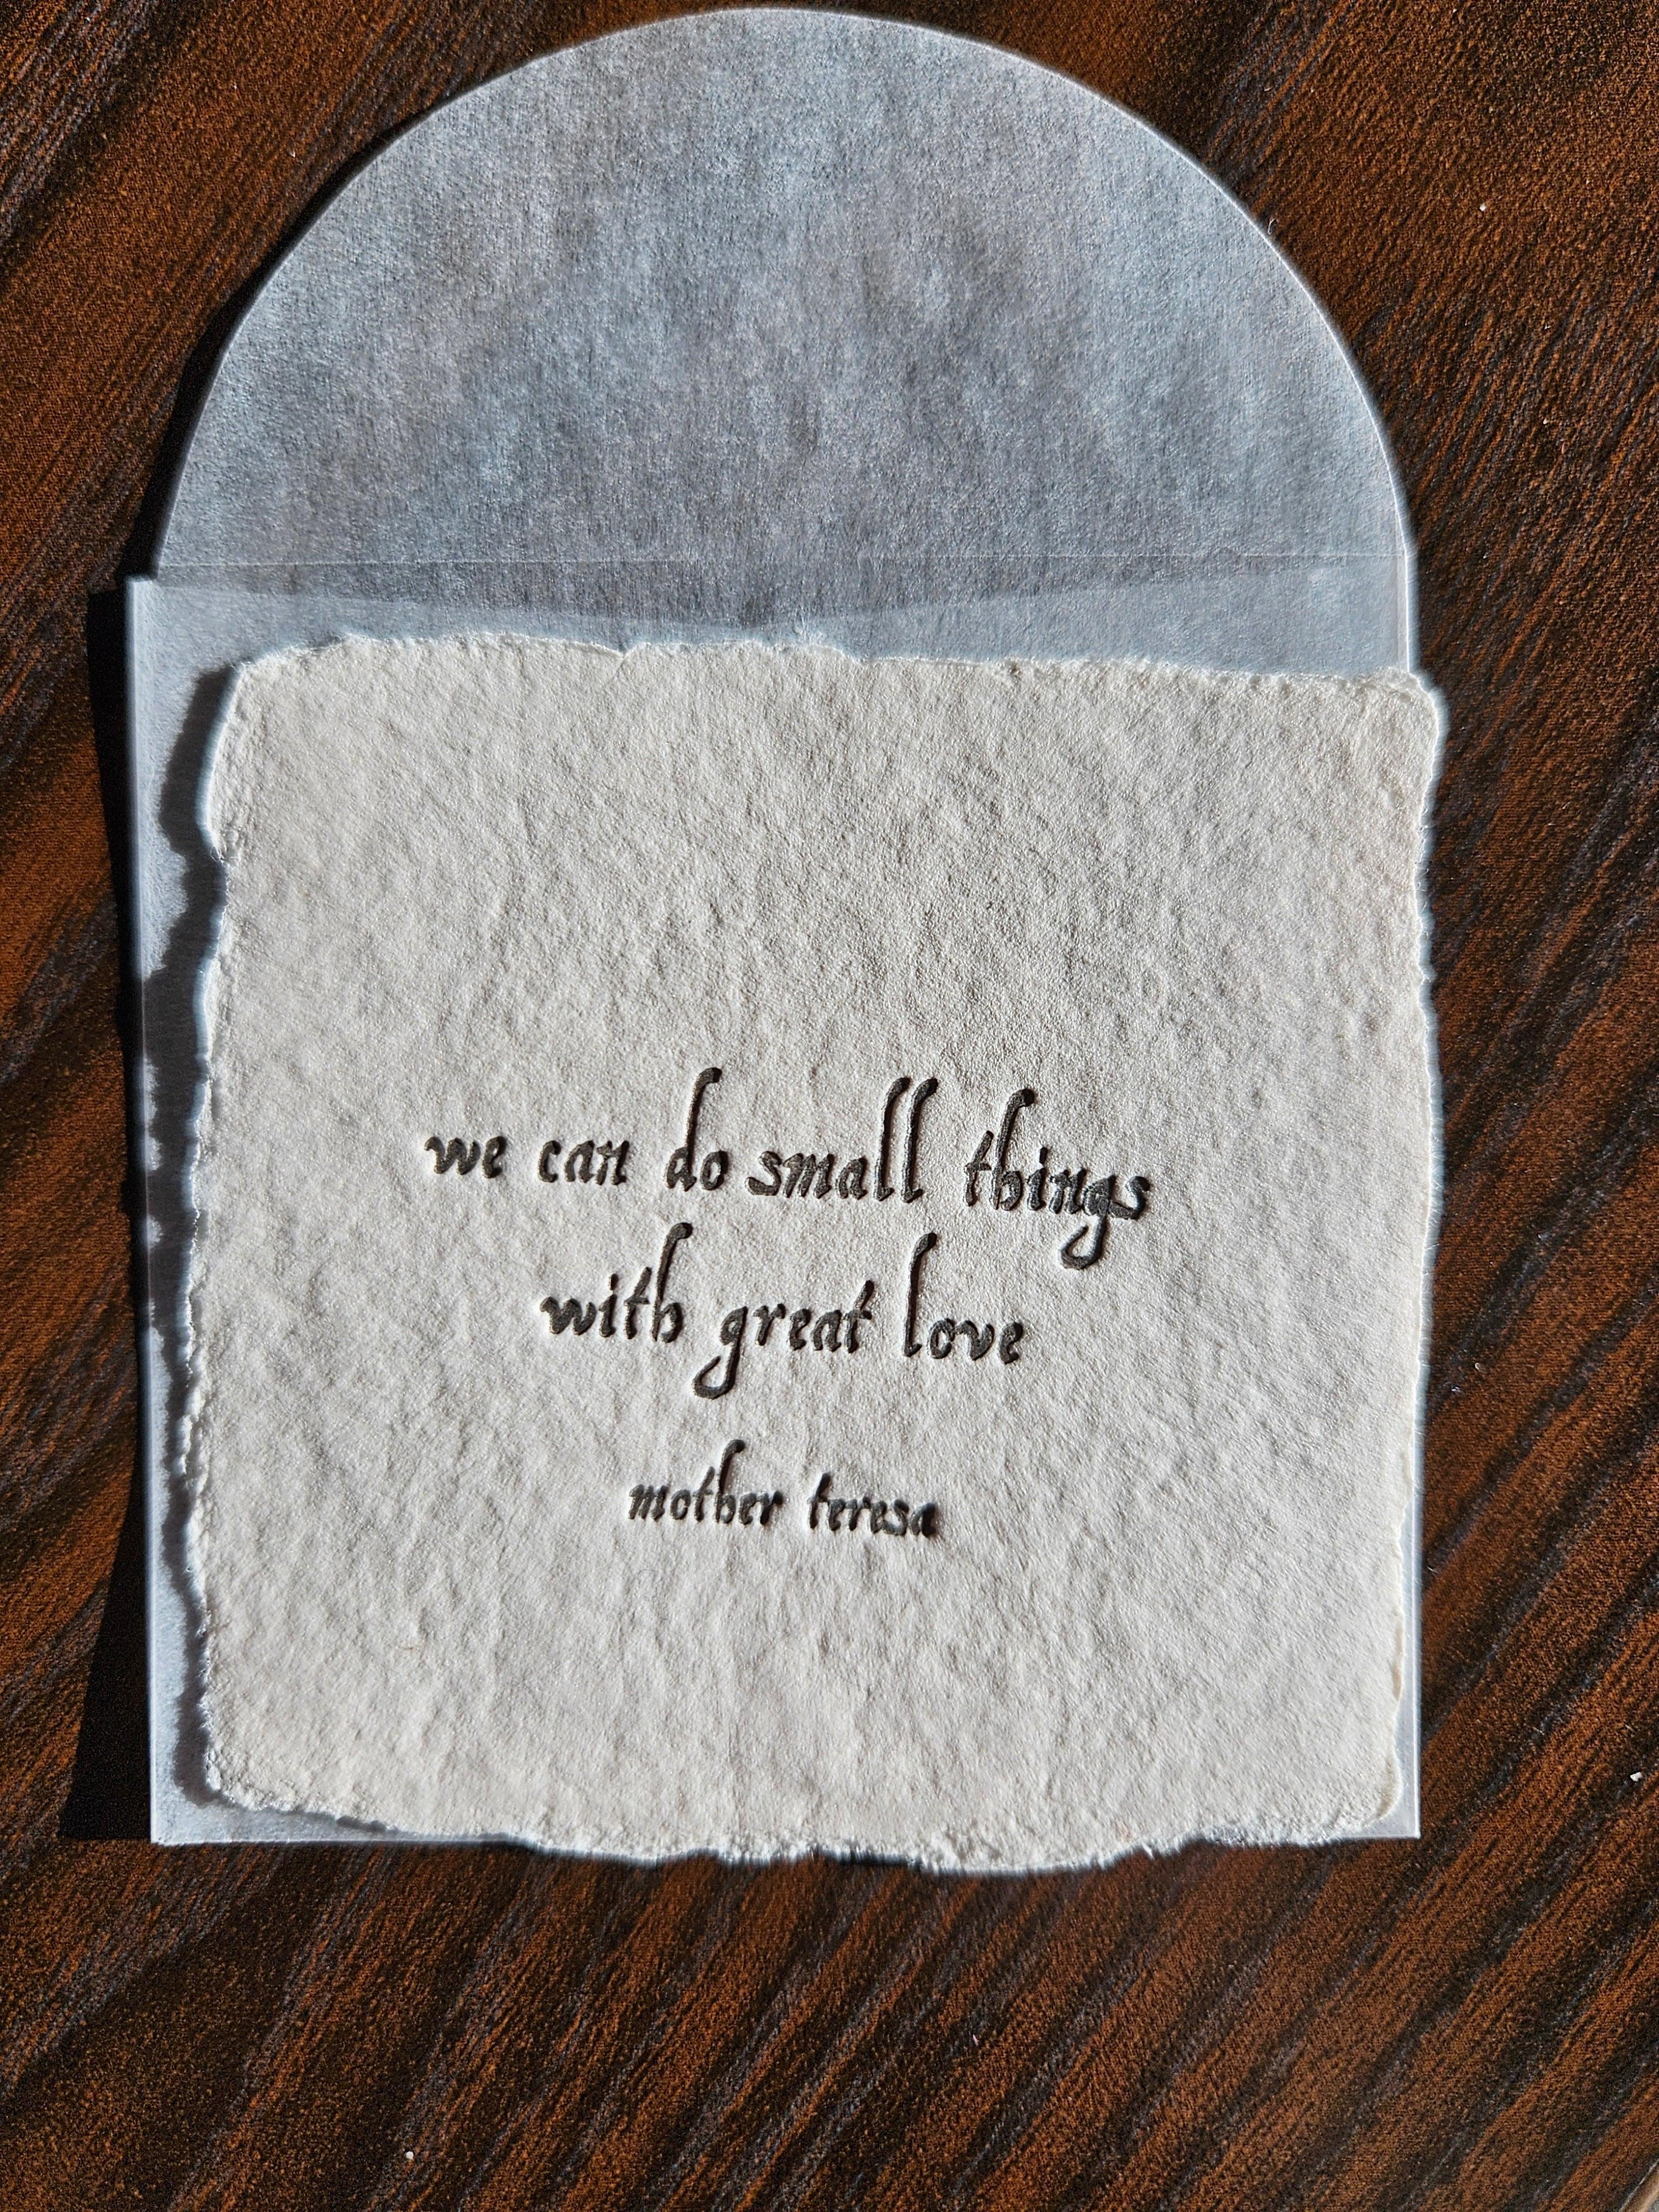 we can do small things
with great love
mother teresa